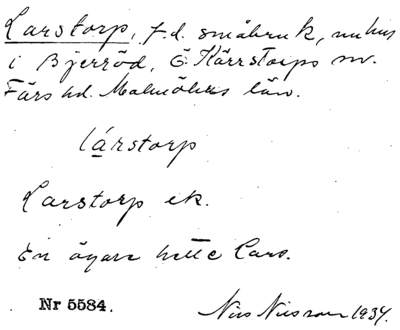 Larstorp, f.d. småbruk, nu hus
i Bjerröd, Ö. Kärrstorps sn.
Färs hd. Malmöhus län.
lárstorp
Larstorp ek.
En ägare hette Lars.
Nr 5584.
Nils Nilsson 1934.